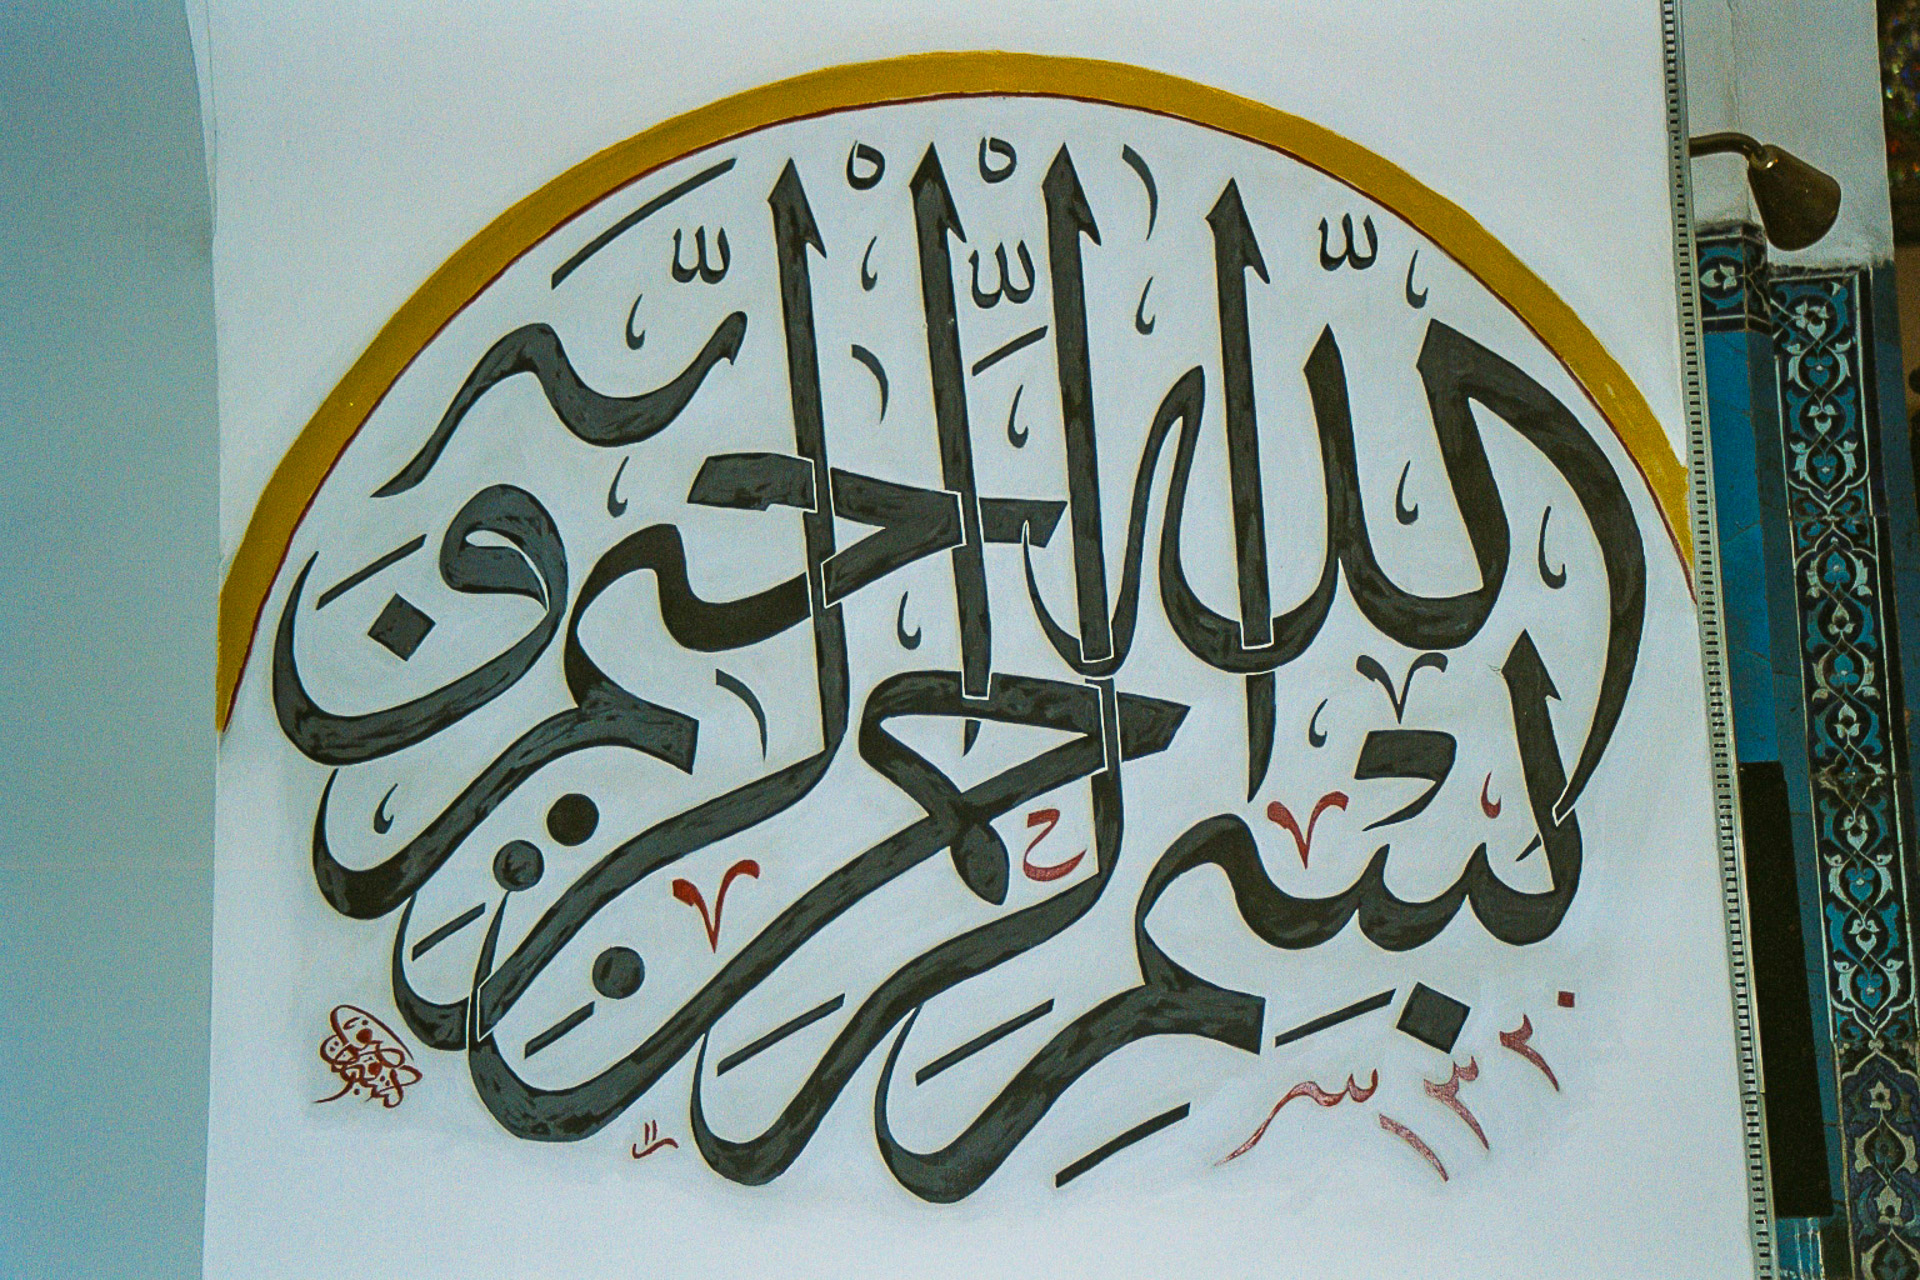 بسم الله الرحمن الرحيم
١٣٢٠